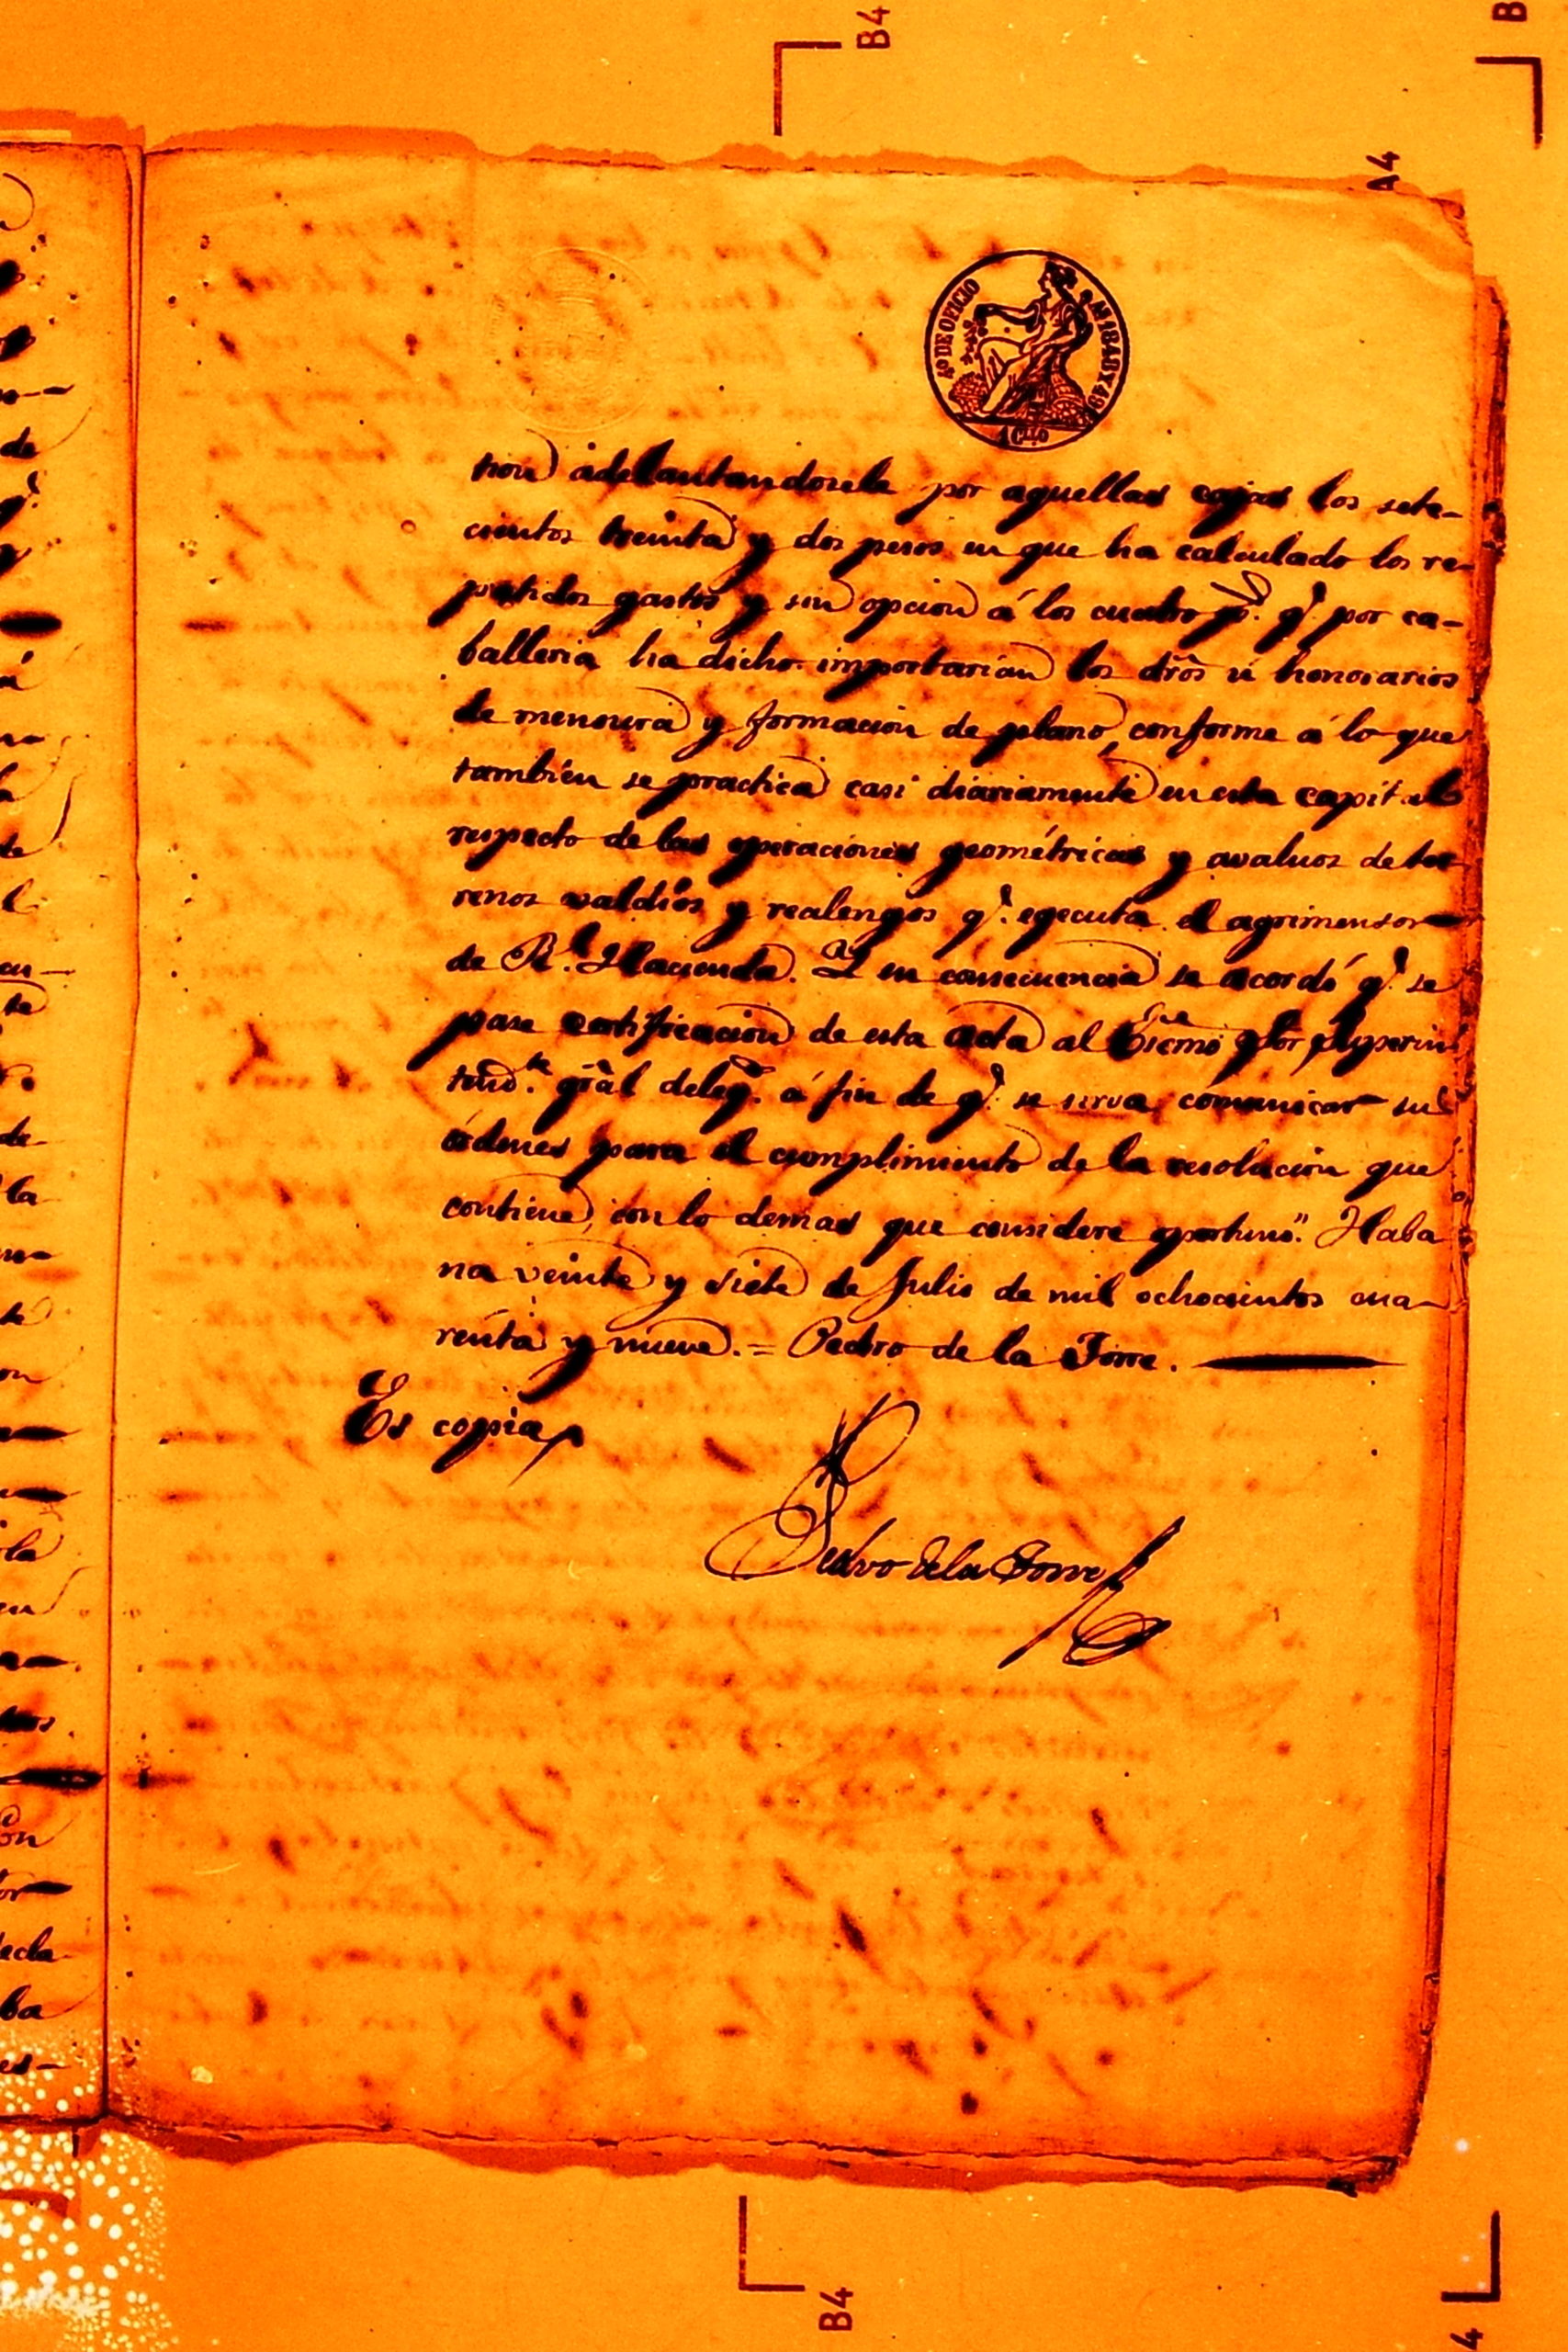 B4
B
A4
4º DE OFICIO AS 1848 Y 49
1 Cllo
tion adelantandosele por aquellas cajas los sete-
cientos treinta y dos pesos en que ha calculado los re-
petidos gastos y sin opcion á los cuatro ps. q.e por ca-
balleria ha dicho importarian los dros ú honorarios
de mensura y formacion de plano, conforme á lo que
tambien se practica casi diariamente en esta capital
respecto de las operaciones geométricas y avaluos de ter-
renos valdios y realengos q.e egecuta el agrimensor
de R.l Hacienda. Y en consecuencia se acordó q.e se
pase certificacion de esta acta al Escmo Sor Superin
tend.te gral deleg.o á fin de q.e se sirva comunicar sus
órdenes para el cumplimiento de la resolucion que
contiene, con lo demas que considere oportuno". Haba
na veinte y siete de Julio de mil ochocientos cua-
renta y nueve. = Pedro de la Torre.
Es copia
Pedro de la Torre
de
la
ecla
ba
es-
B4
4